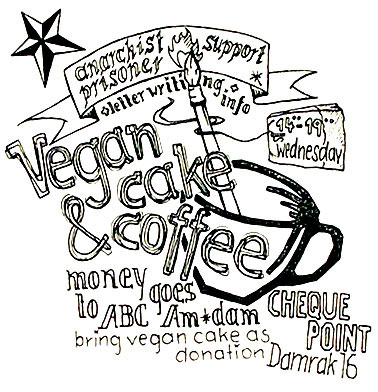 anarchist support
prisoner
letter writing info
14:00 - 19:00
wednesday
Vegan
cake
& coffee
money goes
to ABC Am*dam
bring vegan cake as
donation
CHEQUE
POINT
Damrak 16